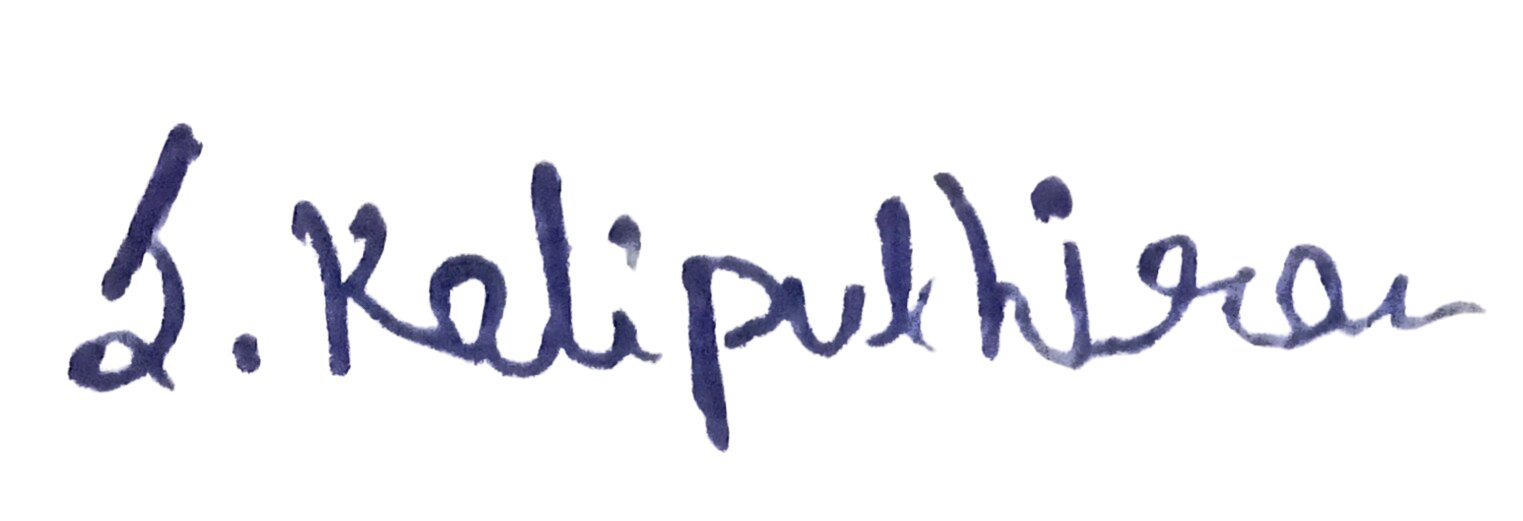 S. Kaliputhiran